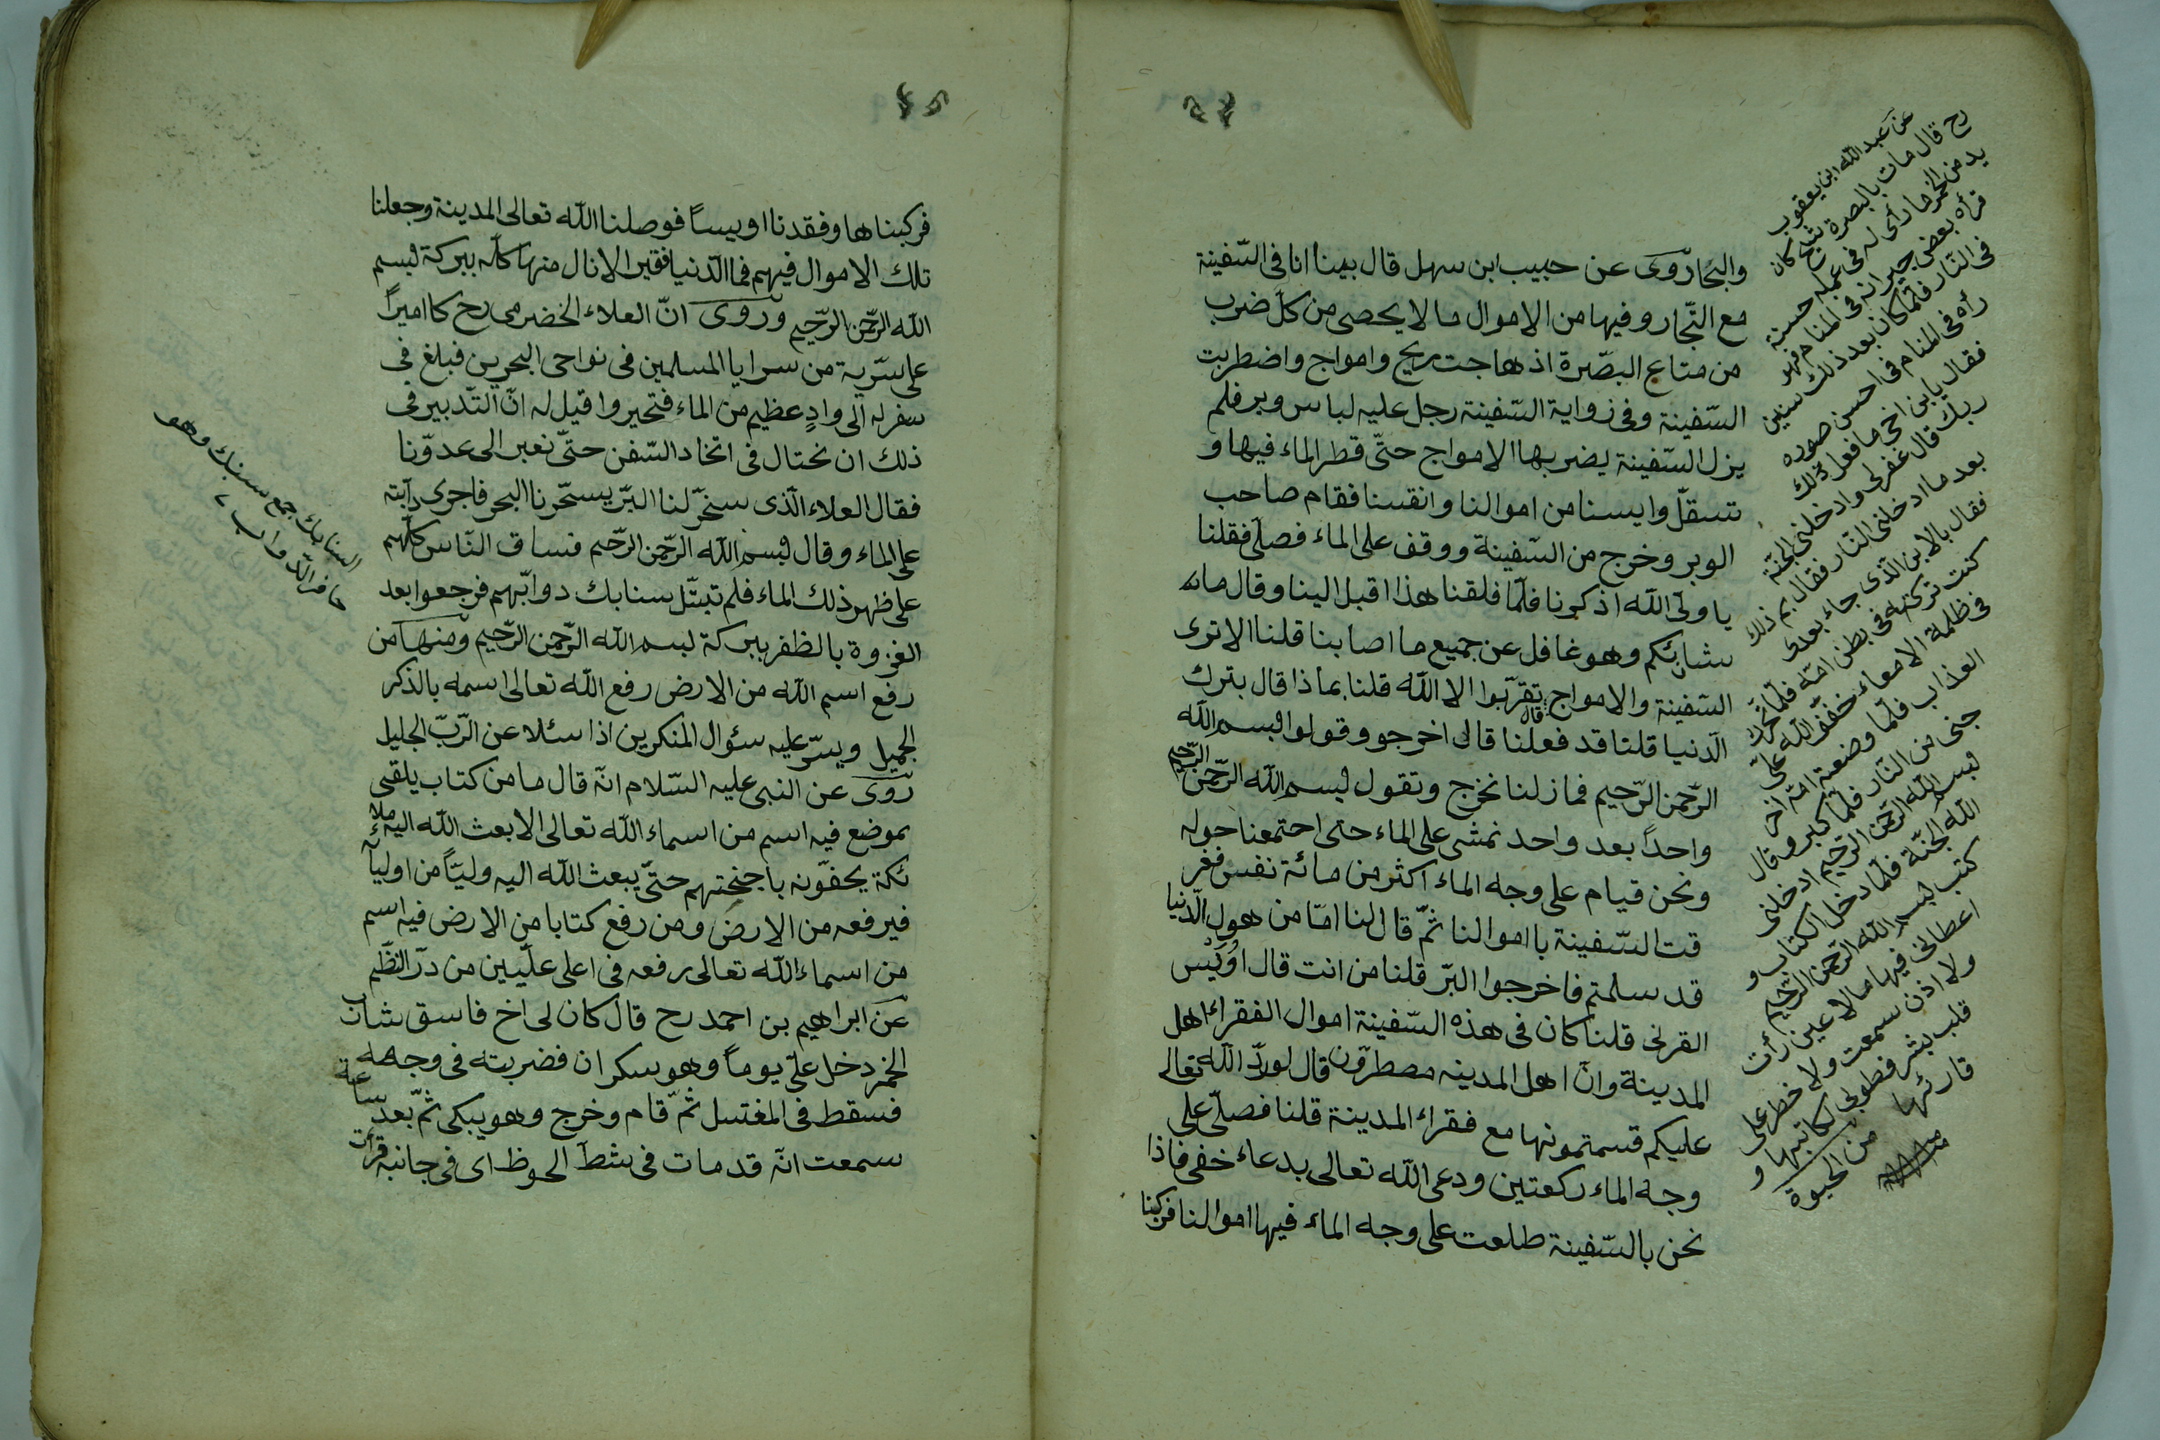 والبحار روى عن حبيب ابن سهل قال بينا انا فى السّفينة
مع التّجار وفيها من الاموال ما لا يحصى من كلّ ضرب
من متاع البصّرة اذ هاجت ريح وامواج واضطربت
السّفينة وفى زواية السّفينة رجل عليه لباس وبر فلم
يزل السّفينة يضربها الامواج حتّى قطر الماء فيها و
تتسقلّ وايسنا من اموالنا وانفسنا فقام صاحب
الوبر وخرج من السّفينة ووقف على الماء فصلّى فقلنا
يا ولىّ اللّه اذكرنا فلمّا فلقنا هذا اقبل الينا وقال ما
شانكم وهو غافل عن جميع ما اصابنا قلنا الا ترى
السّفينة والامواج قال تقرّبوا الا اللّه قلنا بماذا قال بترك
الدنيا قلنا قد فعلنا قال اخرجو وقولوا بسم اللّه
الرّحمن الرّحيم فما زلنا نخرج وتقول بسم اللّه الرّحمن الرّحيم
واحداً بعد واحد نمشى على الماء حتى اجتمعنا حوله
ونحن قيام على وجه الماء اكثر من مائة نفس فغر
قت السّفينة با اموالنا ثمّ قال لنا امّا من هول الدّنيا
قد سلمتم فاخرجوا البرّ قلنا من انت قال اُوَيْس
القرنى قلنا كان فى هذه السّفينة اموال الفقراء اهل
المدينة وانّ اهل المدينه مصطرّون قال لو ردّ اللّه تعالى
عليكم قسمتمونها مع فقراء المدينة قلنا فصلّى على
وجه الماء ركعتين ودعى اللّه تعالى بدعاء خفى فاذا
نحن بالسّفينة طلعت على وجه الماء فيها اموالنا فركبنا
عن عبد اللّه ابن يعقوب
رح قال مات بالبصرة شيخ كان
يدمن الخمر ما رأى له فى عمله حسنة
فرأه بعض جيرانه فى المنام فهو
فى النّار فلمّا كان بعد ذلك سنين
رأه فى المنام فى احسن صوره
فقال يا ابن اخى ما فعل بك
ربك قال غفر لى وادخلنى الجنّة
بعد ما ادخلنى النّار فقال بم ذلك
فقال بالابن الّذى جاء بعدى
كنت تركته فى بطن امّه فلمّا تحرّك
فى ظلمة الامعاء خفّف اللّه علىّ
العذاب فلمّا وضعته امّه اخر
جنى من النّار فلمّا كبر وقال
بسم اللّه الرّحمن الرّحيم ادخلنى
اللّه الجنّة فلمّا دخل الكتاب و
كتب بسم اللّه الرّحمن الرّحيم
اعطانى فيها مالا عين رأت
ولا اذن سمعت ولا خطر على
قلب بشر فطوبى لكاتبها و
قارئها من الحيوة
فركبناها وفقدنا اويساً فوصلنا اللّه تعالى المدينة وجعلنا
تلك الاموال فيهم فما الدّنيا فقير الا نال منها كله ببركة بسم
اللّه الرّحمن الرّحيم وروى انّ العلاء الخضرمى رح كا اميراً
على سّرية من سرايا المسلمين فى نواحى البحرين فبلغ فى
سفرله الى وادٍ عظيم من الماء فتحيروا قيل له انّ التّدبير فى
ذلك ان نحتال فى اتخاد السّفن حتّى نعبر الى عدوّنا
فقال العلاء الّذى سخّر لنا البرّ يسخّرنا البحر فاجرى دآبته
على الماء وقال بسم اللّه الرّحمن الرّحيم فساق النّاس كلّهم
على ظهر ذلك الماء فلم تبتلّ سنابك دوابّهم فرجعوا بعد
الغزوة بالظفر ببركة بسم اللّه الرّحمن الرّحيم ومنها من
رفع اسم اللّه من الارض رفع اللّه تعالى اسمه بالذكر
الجميل ويسّر عليه سئوال المنكرين اذا سئلا عن الرّبّ الجليل
روى عن النبى عليه السّلام انّه قال ما من كتاب يلقى
بموضع فيه اسم من اسماء اللّه تعالى الا بعث اللّه اليه ملا
ئكة يحفّونه باجنحتهم حتّى يبعث اللّه اليه وليّاً من اوليآ
فيرفعه من الارض ومن رفع كتابا من الارض فيه اسم
من اسماء اللّه تعالى رفعه فى اعلى علّيين من درّ النّظّم
عن ابراهيم بن احمد رح قال كان لى اخ فاسق شاب
الخمر دخل علىّ يوماً وهو سكران فضربته فى وجهه
فسقط فى المغتسل ثمّ قام وخرج وهو يبكى ثمّ بعد ساعة
سمعت انّه قد مات فى شطّ الحوظ اى فى جانبه قرأت
السنابك جمع سنبك وهو
حافر الدّواب